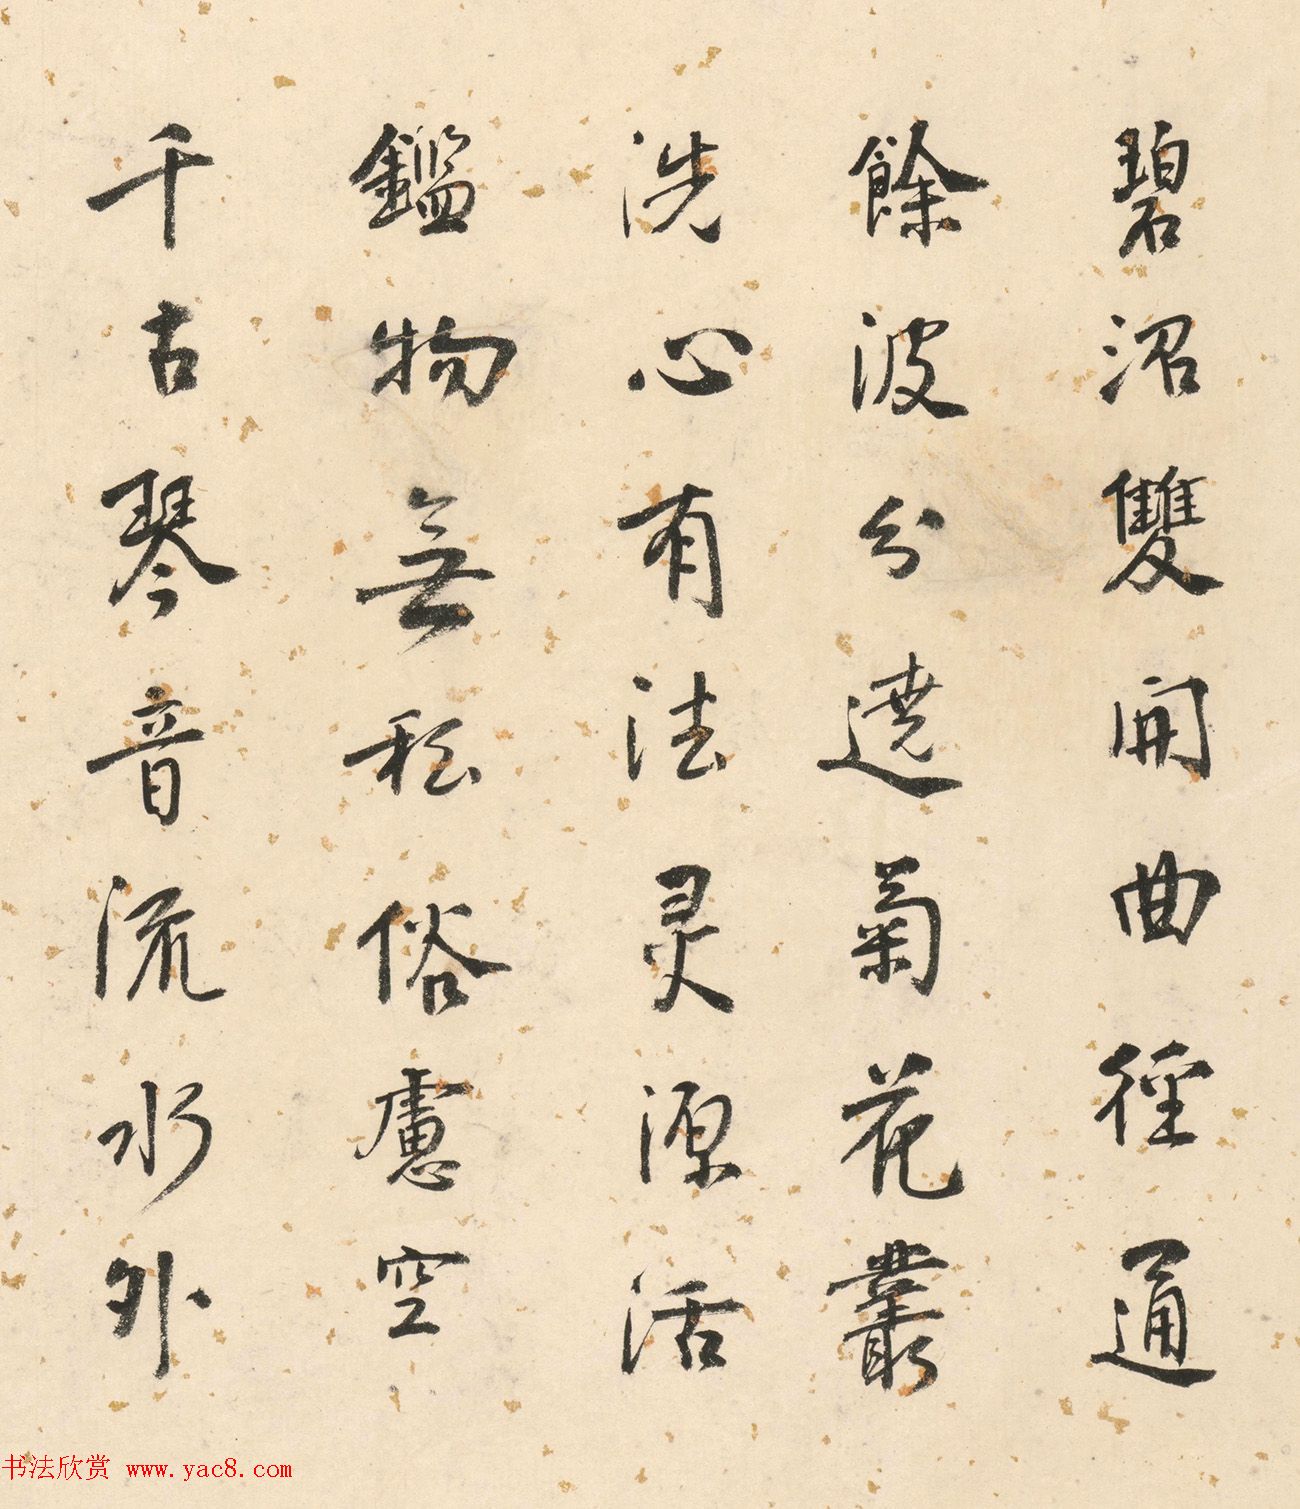 碧沼雙開曲徑通
餘波分遶菊花叢
洗心有法灵源活
鑑物無私俗慮空
千古琴音流水外
书法欣赏 www.yac8.com